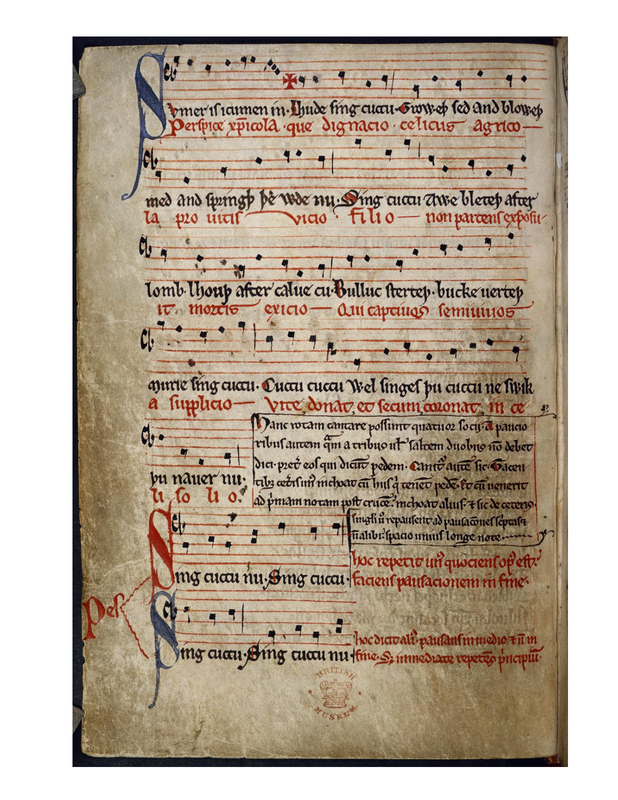 Sumer is icumen in · Lhude sing cuccu · Groweþ sed and bloweþ
Perspice xp̄icola · que dignacio · celicus agrico
med and springþ þe wde nu · Sing cuccu Awe bleteþ after
la pro uitis vicio filio non parcens exposu
lomb lhouþ after calue cu · Bulluc sterteþ · bucke uerteþ
it mortis exicio Qui captiuos semiuiuos
murie sing cuccu · Cuccu cuccu Wel singes þu cuccu ne swik
a supplicio vite donat et secum coronat in ce
Hanc rotam cantare possunt quatuor socij · A paucio
ribus autem quam a tribus uel saltem duobus non debet
dici · preter eos qui dicunt pedem · Canitur autem sic · Tacen
þu nauer nu ·
li so li o ·
tibus ceteris unus inchoat cum hijs qui tenent pedem · Et cum uenerit
ad primam notam post crucem · inchoat alius · & sic de ceteris ·
singuli uero repausent ad pausaciones scriptas &
non alibi · spacio unius longe note
hoc repetit unus quociens opus est ·
Sing cuccu nu · Sing cuccu ·
faciens pausacionem in fine ·
Pes
hoc dicit alius · pausans in medio & non in
Sing cuccu · Sing cuccu nu ·
fine · Sed inmediate repetens principium ·
BRITISH
MUSEUM